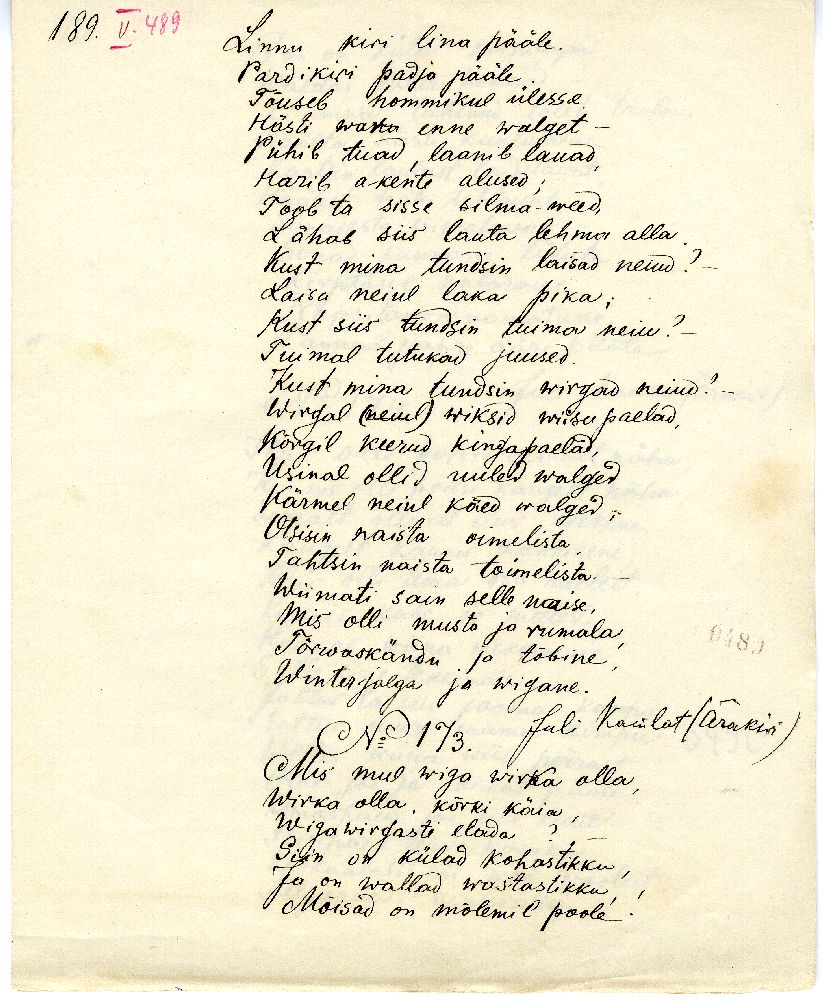 189. V. 489
Linnu kiri lina pääle.
Pardikiri padja pääle.
Tõuseb hommikul ülesse
Hästi enne walget –
Pühib tuad, laanib lauad,
Harib akente alused;
Toob ta sisse silma-weed,
Lähab siis lauta lehma alla.
Kust mina tundsin laisad neiud? –
Laisa neiul laka pika;
Kust siis tundsin tuima neiu? –
Tuimal tutukad juused.
Kust mina tundsin wirgad neiud? –
Wirgal (neiul) wiksid wiisu paelad,
Kõrgil keerud kingapaelad,
Usinal ollid uuled walged
Kärmel neiul käed walged;
Otsisin naista oimelista,
Tahtsin naista toimelista. –
Wiimati sain selle naise,
Mis olli musta ja rumala,
Tõrwaskändu ja tõbine,
Winterjalga ja wigane.
Juli Kaulat (Ärakiri)
№ 173.
Mis mul wiga wirka olla,
Wirka olla, kõrki käia,
Wiga wirgasti elada? –
Siin on külad kohastikku,
Ja on wallad wastastikku,
Mõisad on mõlemil poole.
0489